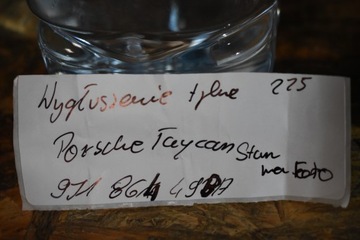 Wygłuszenie tylne 225
Porsche Taycan Stan
na Foto
9J1 864 4987A